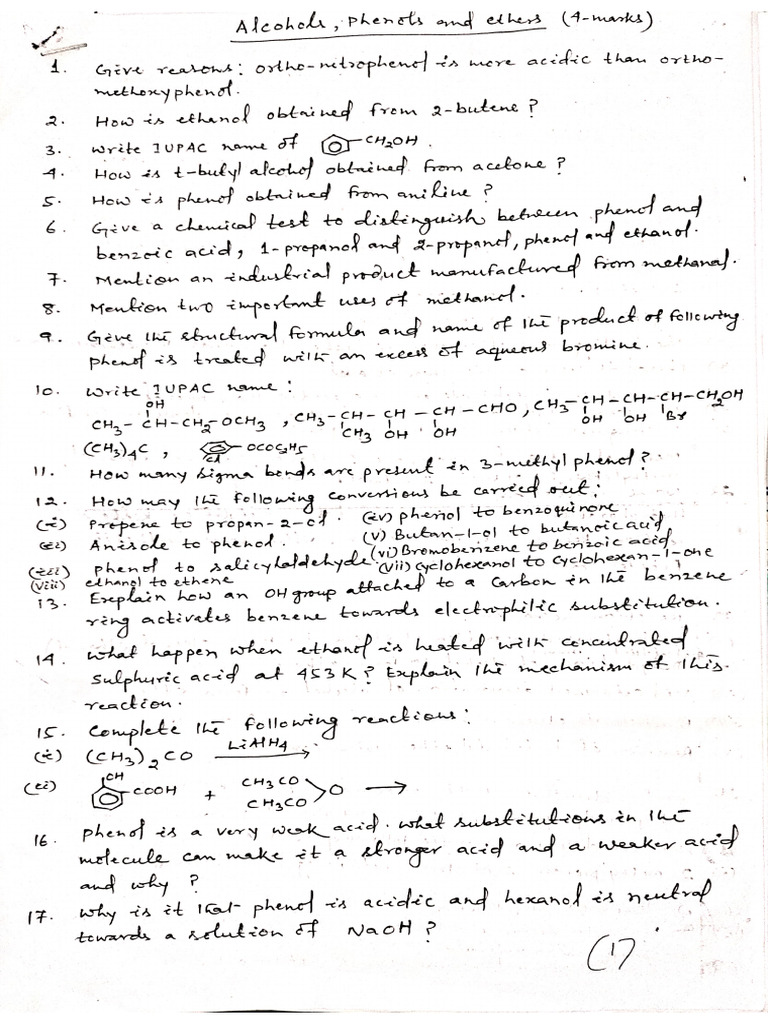 Alcohols, Phenols and ethers (4-marks)
1. Give reasons: ortho-nitrophenol is more acidic than ortho-
methoxyphenol.
2. How is ethanol obtained from 2-butene?
3. Write IUPAC name of -CH2OH.
4. How is t-butyl alcohol obtained from acetone?
5. How is phenol obtained from aniline?
6. Give a chemical test to distinguish between phenol and
benzoic acid, 1-propanol and 2-propanol, phenol and ethanol.
7. Mention an industrial product manufactured from methanal.
8. Mention two important uses of methanol.
9. Give the structural formula and name of the product of following
phenol is treated with an excess of aqueous bromine.
10. Write IUPAC name:
OH
CH3-CH-CH2-OCH3, CH3-CH-CH-CH-CHO, CH3-CH-CH-CH-CH2OH
CH3 OH OH OH OH Br
(CH3)4C, Cl OCOC2H5
11. How many sigma bonds are present in 3-methyl phenol?
12. How may the following conversions be carried out:
(i) Propene to propan-2-ol. (iv) phenol to benzoquinone
(ii) Anisole to phenol. (v) Butan-1-ol to butanoic acid
(iii) phenol to salicylaldehyde (vi) Bromobenzene to benzoic acid
(viii) ethanol to ethene (vii) cyclohexanol to cyclohexan-1-one
13. Explain how an OH group attached to a carbon in the benzene
ring activates benzene towards electrophilic substitution.
14. What happen when ethanol is heated with concentrated
sulphuric acid at 453K? Explain the mechanism of this
reaction.
15. Complete the following reactions:
(i) (CH3)2CO LiAlH4 →
(ii) OH COOH + CH3CO CH3CO >O →
16. Phenol is a very weak acid. What substitutions in the
molecule can make it a stronger acid and a weaker acid
and why?
17. Why is it that phenol is acidic and hexanol is neutral
towards a solution of NaOH?
(1)